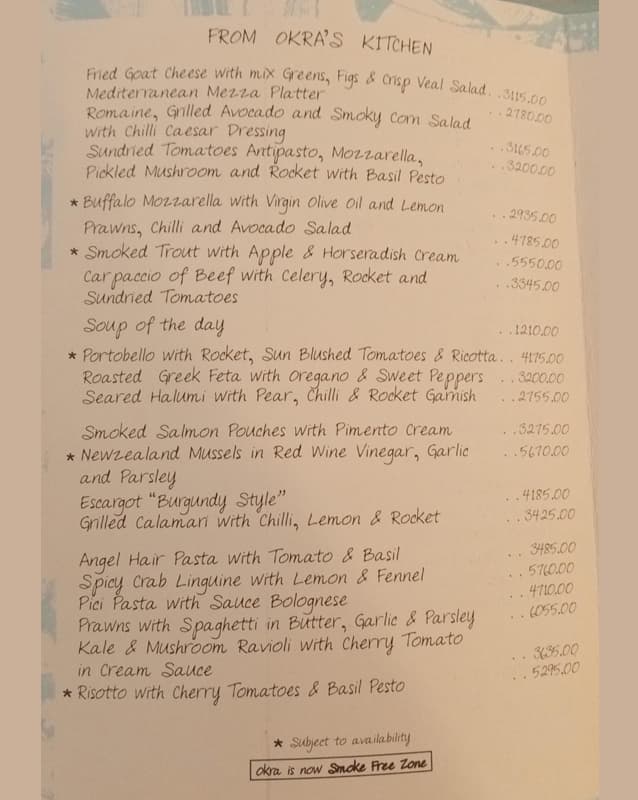 FROM OKRA'S KITCHEN
Fried Goat Cheese with mix Greens, Figs & Crisp Veal Salad. . 3115.00
Mediterranean Mezza Platter . . 2780.00
Romaine, Grilled Avocado and Smoky Corn Salad
with Chilli Caesar Dressing . . 3165.00
Sundried Tomatoes Antipasto, Mozzarella,
Pickled Mushroom and Rocket with Basil Pesto . . 3200.00
* Buffalo Mozzarella with Virgin Olive Oil and Lemon . . 2935.00
Prawns, Chilli and Avocado Salad . . 4785.00
* Smoked Trout with Apple & Horseradish Cream . . 5550.00
Carpaccio of Beef with Celery, Rocket and . . 3345.00
Sundried Tomatoes
Soup of the day . . 1210.00
* Portobello with Rocket, Sun Blushed Tomatoes & Ricotta . . 4175.00
Roasted Greek Feta with Oregano & Sweet Peppers . . 3200.00
Seared Halumi with Pear, Chilli & Rocket Garnish . . 2755.00
Smoked Salmon Pouches with Pimento Cream . . 3275.00
* Newzealand Mussels in Red Wine Vinegar, Garlic . . 5670.00
and Parsley
Escargot "Burgundy Style" . . 4185.00
Grilled Calamari with Chilli, Lemon & Rocket . . 3425.00
Angel Hair Pasta with Tomato & Basil . . 3485.00
Spicy Crab Linguine with Lemon & Fennel . . 5760.00
Pici Pasta with Sauce Bolognese . . 4710.00
Prawns with Spaghetti in Butter, Garlic & Parsley . . 6055.00
Kale & Mushroom Ravioli with Cherry Tomato
in Cream Sauce . . 3635.00
* Risotto with Cherry Tomatoes & Basil Pesto . . 5295.00
* Subject to availability
okra is now Smoke Free Zone